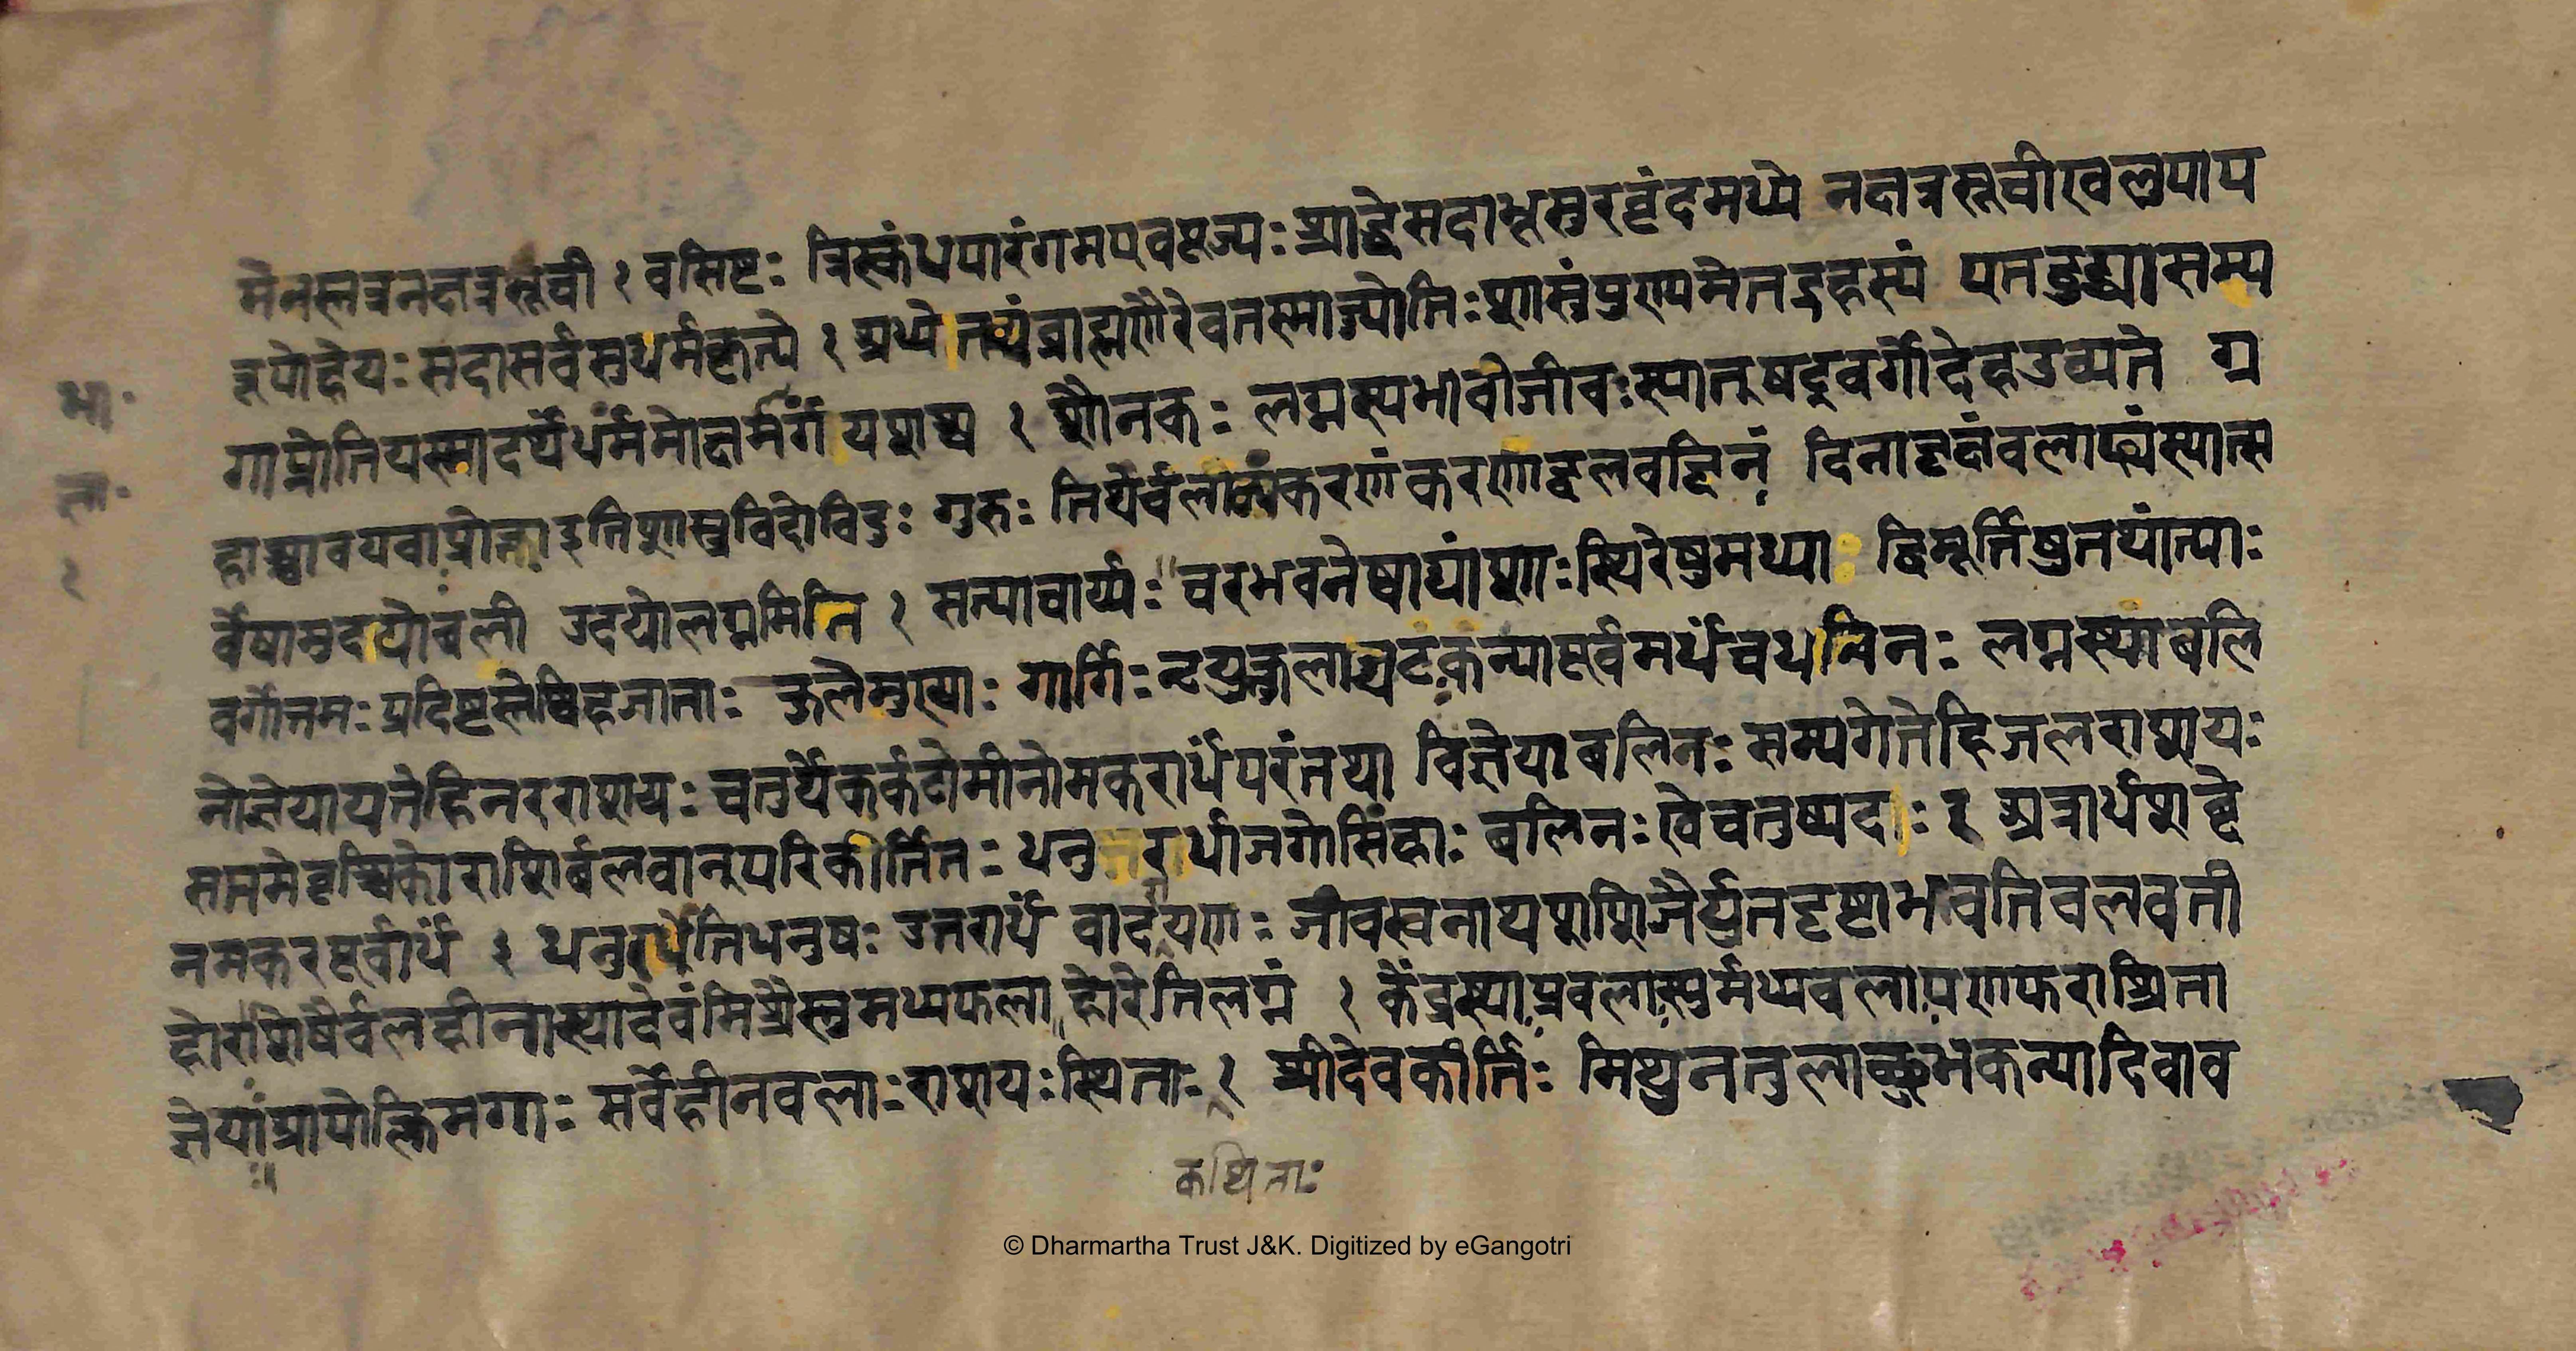 मेनस्तत्रनक्षत्रसूची १ वसिष्टः त्रिस्कंधपारंगमएवपूज्यः श्राद्धेसदाभूसुरवृंदमध्ये नक्षत्रसूचीखलुपाप
रूपोहेयः सदासर्वसुधर्मकृत्ये १ अध्येतव्यंब्राह्मणैरेवतस्माज्ज्योतिःशास्त्रंपुण्यमेतद्रहस्यं एतद्बुध्वासम्य
गाप्नोतियस्मादर्थंधर्मंमोक्षमग्र्यं यशश्च १ शौनकः लग्नस्यभावोजीवःस्यात्षट्वर्गोदेहउच्यते ग्र
हाश्चावयवाप्रोक्ताइतिशास्त्रविदोविदुः गुरुः तिथेर्बलाढ्यंकरणंकरणाद्बलवद्दिनं दिनादृक्षंबलाढ्यंस्यात्स
र्वेषामुदयोबली उदयोलग्नमिति १ सत्याचार्य्यः चरभवनेषाद्यांशाःस्थिरेषुमध्या द्विमूर्त्तिषुतथांत्याः
वर्गोत्तमः प्रदिष्टास्तेष्विहजाताः कुलेमुख्याः गार्गिः नृयुक्तुलाघटकन्यापूर्वमर्धंचधन्विनः लग्नस्थाबलि
नोज्ञेयाएतेहिनरराशयः चतुर्थेकर्कटोमीनोमकरार्धंपरंतथा विज्ञेयाबलिनः सम्यगेतेहिजलराशयः
सप्तमेवृश्चिकोराशिर्बलवान्परिकीर्त्तितः धनुरार्धाजगोसिंहाः बलिनःखेचतुष्पदाः १ अत्रार्धशब्दे
नमकरपूर्वार्धं १ धनुरर्धेतिधनुषः उत्तरार्धं बादरायणः जीवस्वनाथशशिजैर्युतदृष्टाभवतिबलवती
होराशेषैर्बलहीनास्यादेवंमिश्रैस्तुमध्यफला होरेतिलग्नं १ केंद्रस्थाप्रबलास्स्युर्मध्यबलापणफराश्रिता
ज्ञेयाआपोक्लिमगाः सर्वेहीनबलाःराशयःस्थिताः १ श्रीदेवकीर्त्तिः मिथुनतुलाकुंभकन्यादिवाब
कथिताः
भा॰
ला॰
१
© Dharmartha Trust J&K. Digitized by eGangotri